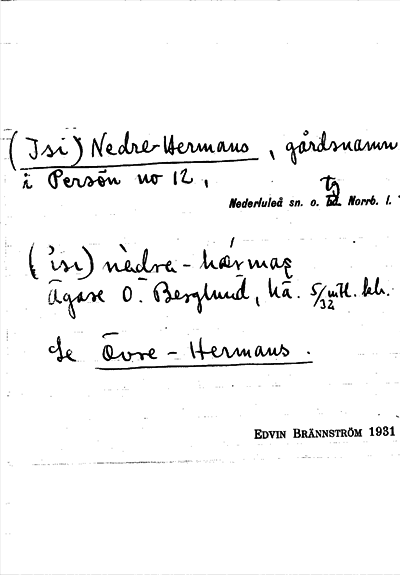 (Isi) Nedre-Hermans, gårdsnamn
i Persön no 12,
Nederluleå sn. o. tg Norrb. l.
('isi) nèdre-hǽrmaʂ
Ägare O. Berglund, hä. 5/32 mtl. kh.
Se Övre-Hermans.
EDVIN BRÄNNSTRÖM 1931